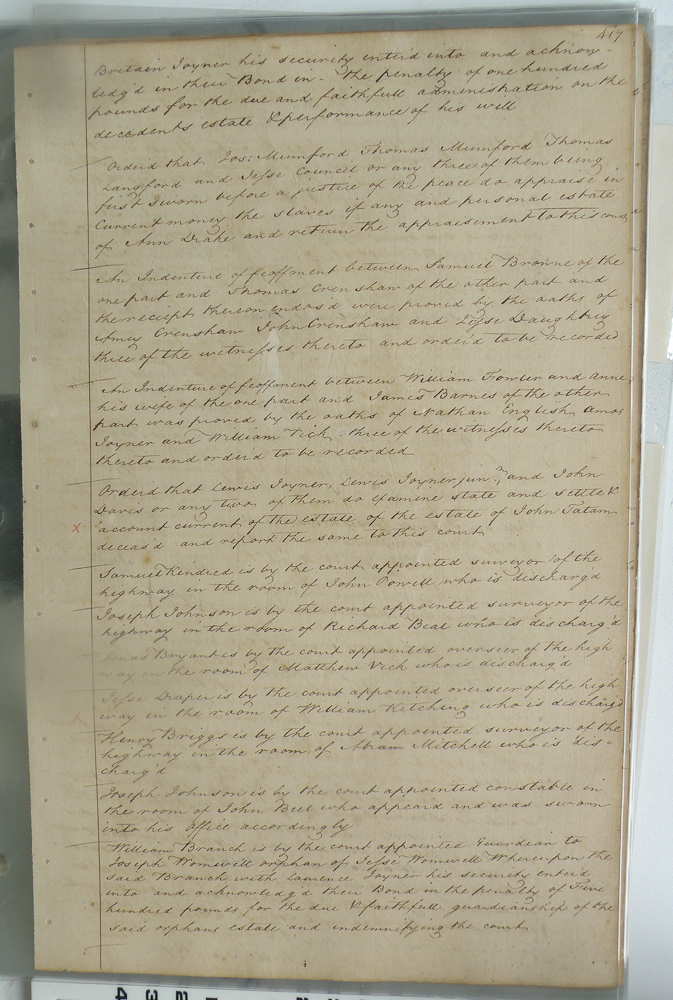 417
Britain Joyner his security enter'd into and acknow-
ledg'd in their Bond in - the penalty of one hundred
pounds for the due and faithfull administration on the
decedents estate & performance of his will
Orderd that Jos: Mumford Thomas Mumford Thomas
Lansford and Jesse Council or any three of them being
first sworn before a justice of the peace do appraise in
Current money the slaves if any and personal estate
of Ann Drake and return the appraisement to this court
An Indenture of feoffment between Samuel Browne of the
one part and Thomas Crenshaw of the other part and
the reciept thereon endos'd were proved by the oaths of
Amey Crenshaw John Crenshaw and Jesse Daughtrey
three of the witnesses thereto and order'd to be recorded
An Indenture of feoffment between William Fowler and Anne
his wife of the one part and James Barnes of the other
part was proved by the oaths of Nathan English Amos
Joyner and William Vick three of the witnesses thereto
thereto and order'd to be recorded
Orderd that Lewis Joyner, Lewis Joyner jun.r and John
Davis or any two of them do Examine state and settle &
X account current of the estate of the estate of John Tatam
deceas'd and report the same to this court
Samuel Kindred is by the court appointed surveyor of the
highway in the room of John Powell who is discharg'd
Joseph Johnson is by the court appointed surveyor of the
highway in the room of Richard Beal who is discharg'd
Jonas Bryant is by the court appointed overseer of the high
way in the room of Matthew Vick who is discharg'd
Jesse Draper is by the court appointed overseer of the high
way in the room of William Kitching who is discharg'd
Henry Briggs is by the court appointed surveyor of the
highway in the room of Abram Mitchell who is dis=
charg'd
Joseph Johnson is by the court appointed constable in
the room of John Beel who appeard and was sworn
into his office accordingly
William Branch is by the court appointed Guardian to
Joseph Womwell orphan of Jesse Womwell Whereupon the
said Branch with Laurence Joyner his security enter'd
into and acknowledg'd their Bond in the penalty of Five
hundred pounds for the due & faithfull guardianship of the
said orphans estate and indemnifying the court